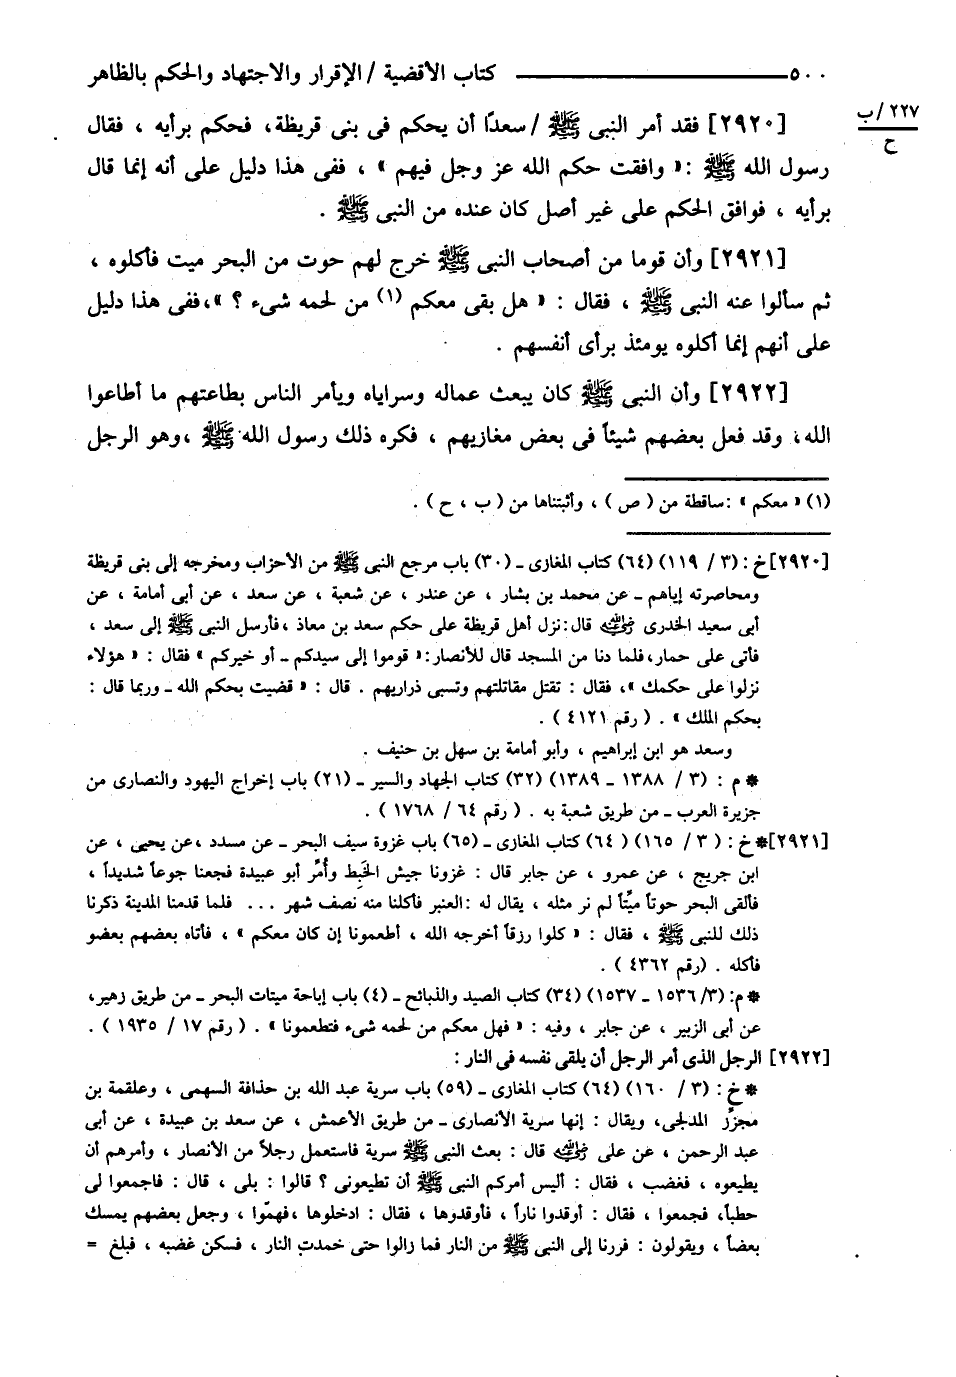 ٥٠٠ ـــــــ كتاب الأقضية / الإقرار والاجتهاد والحكم بالظاهر
٢٢٧/ب
ح
[٢٩٢٠] فقد أمر النبى ﷺ / سعدًا أن يحكم فى بنى قريظة، فحكم برأيه ، فقال
رسول الله ﷺ :« وافقت حكم الله عز وجل فيهم » ، ففى هذا دليل على أنه إنما قال
برأيه ، فوافق الحكم على غير أصل كان عنده من النبى ﷺ .
[٢٩٢١] وأن قوما من أصحاب النبى ﷺ خرج لهم حوت من البحر ميت فأكلوه ،
ثم سألوا عنه النبى ﷺ ، فقال : « هل بقى معكم (١) من لحمه شىء ؟ »،ففى هذا دليل
على أنهم إنما أكلوه يومئذ برأى أنفسهم .
[٢٩٢٢] وأن النبى ﷺ كان يبعث عماله وسراياه ويأمر الناس بطاعتهم ما أطاعوا
الله، وقد فعل بعضهم شيئاً فى بعض مغازيهم ، فكره ذلك رسول الله ﷺ ،وهو الرجل
(١) « معكم » :ساقطة من ( ص ) ، وأثبتناها من ( ب ، ح ) .
[٢٩٢٠] خ : (٣ / ١١٩) (٦٤) كتاب المغازى ـ (٣٠) باب مرجع النبى ﷺ من الأحزاب ومخرجه إلى بنى قريظة
ومحاصرته إياهم ـ عن محمد بن بشار ، عن غندر ، عن شعبة ، عن سعد ، عن أبى أمامة ، عن
أبى سعيد الخدرى رضي الله عنه قال:نزل أهل قريظة على حكم سعد بن معاذ ،فأرسل النبى ﷺ إلى سعد ،
فأتى على حمار،فلما دنا من المسجد قال للأنصار:« قوموا إلى سيدكم ـ أو خيركم » فقال : «هؤلاء
نزلوا على حكمك »، فقال : تقتل مقاتلتهم وتسبى ذراريهم . قال : « قضيت بحكم الله ـ وربما قال :
بحكم الملك » . ( رقم ٤١٢١ ) .
وسعد هو ابن إبراهيم ، وأبو أمامة بن سهل بن حنيف .
* م : (٣ / ١٣٨٨ ـ ١٣٨٩) (٣٢) كتاب الجهاد والسير ـ (٢١) باب إخراج اليهود والنصارى من
جزيرة العرب ـ من طريق شعبة به . ( رقم ٦٤ / ١٧٦٨ ) .
[٢٩٢١] * خ : ( ٣ / ١٦٥) ( ٦٤) كتاب المغازى ـ (٦٥) باب غزوة سيف البحر ـ عن مسدد ،عن يحيى ، عن
ابن جريج ، عن عمرو ، عن جابر قال : غزونا جيش الخَبِط وأُمِّر أبو عبيدة فجعنا جوعاً شديداً ،
فألقى البحر حوتاً ميِّتاً لم نر مثله ، يقال له :العنبر فأكلنا منه نصف شهر ... فلما قدمنا المدينة ذكرنا
ذلك للنبى ﷺ ، فقال : « كلوا رزقاً أخرجه الله ، أطعمونا إن كان معكم » ، فأتاه بعضهم بعضو
فأكله . (رقم ٤٣٦٢ ) .
* م: (٣/ ١٥٣٦ ـ ١٥٣٧) (٣٤) كتاب الصيد والذبائح ـ (٤) باب إباحة ميتات البحر ـ من طريق زهير،
عن أبى الزبير ، عن جابر ، وفيه : « فهل معكم من لحمه شىء فتطعمونا » . ( رقم ١٧ / ١٩٣٥ ) .
[٢٩٢٢] الرجل الذى أمر الرجل أن يلقى نفسه فى النار :
* خ : (٣ / ١٦٠) (٦٤) كتاب المغازى ـ (٥٩) باب سرية عبد الله بن حذافة السهمى ، وعلقمة بن
مجزِّز المدلجى، ويقال : إنها سرية الأنصارى ـ من طريق الأعمش ، عن سعد بن عبيدة ، عن أبى
عبد الرحمن ، عن على رضي الله عنه قال : بعث النبى ﷺ سرية فاستعمل رجلاً من الأنصار ، وأمرهم أن
يطيعوه ، فغضب ، فقال : أليس أمركم النبى ﷺ أن تطيعونى ؟ قالوا : بلى ، قال : فاجمعوا لى
حطباً، فجمعوا ، فقال : أوقدوا ناراً ، فأوقدوها ، فقال : ادخلوها ،فهمّوا ، وجعل بعضهم يمسك
بعضاً ، ويقولون : فررنا إلى النبى ﷺ من النار فما زالوا حتى خمدت النار ، فسكن غضبه ، فبلغ =